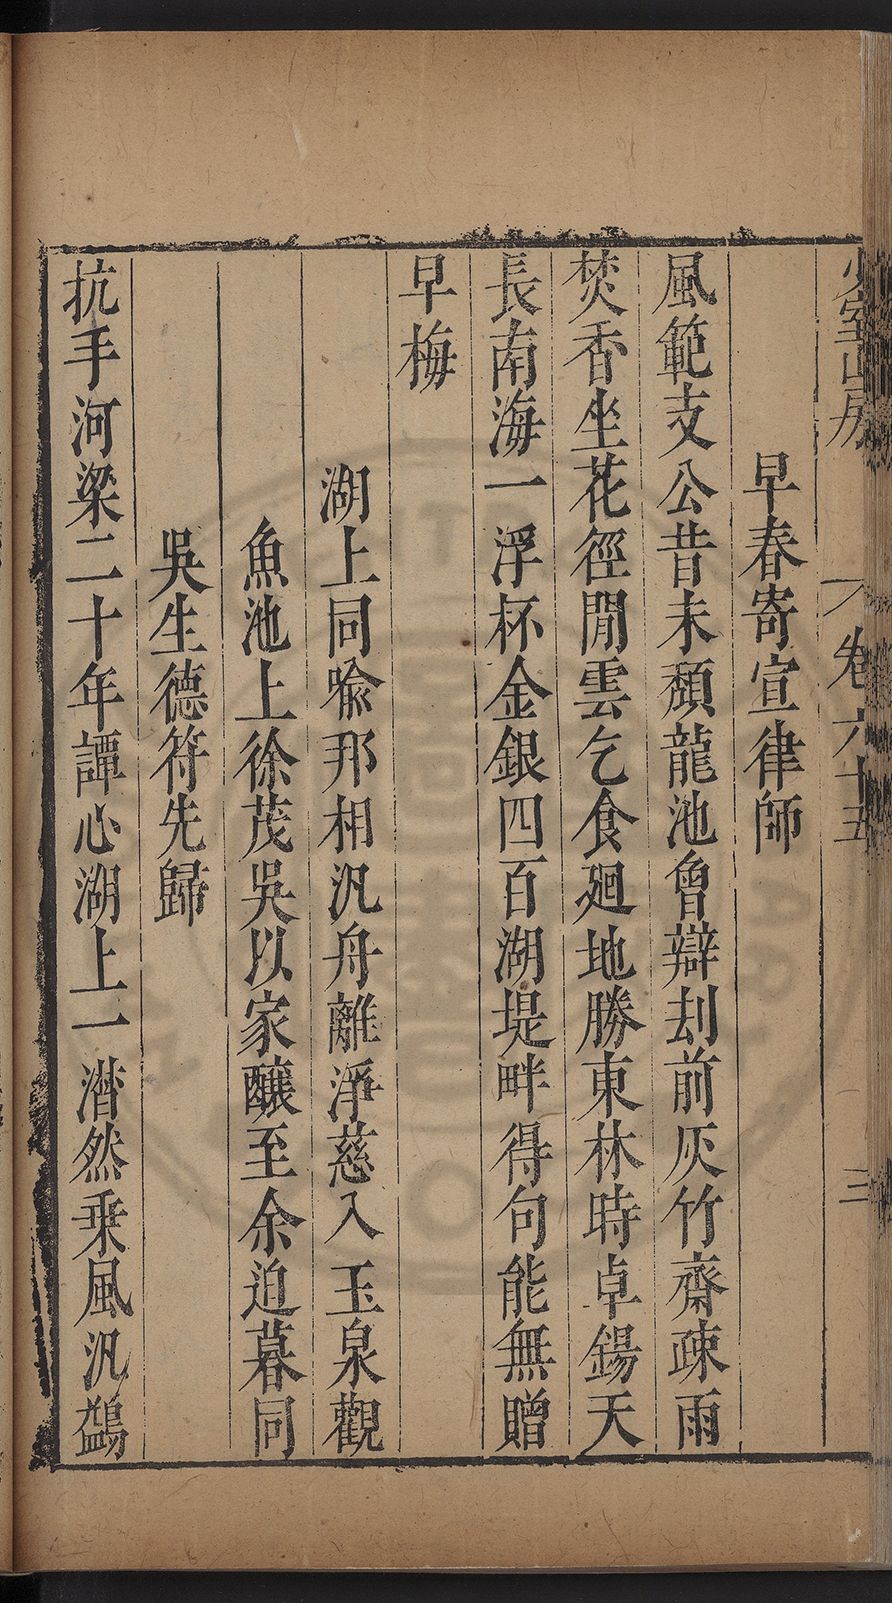 少室山房 卷六十五 三
早春寄宣律師
風範支公昔未頹龍池曾辯刦前灰竹齋疎雨
焚香坐花徑閒雲乞食廻地勝東林時卓錫天
長南海一浮杯金銀四百湖堤畔得句能無贈
早梅
湖上同喻邦相汎舟離淨慈入玉泉觀
魚池上徐茂吳以家釀至余迫暮同
吳生德符先歸
抗手河梁二十年譚心湖上一潸然乗風汎鷁